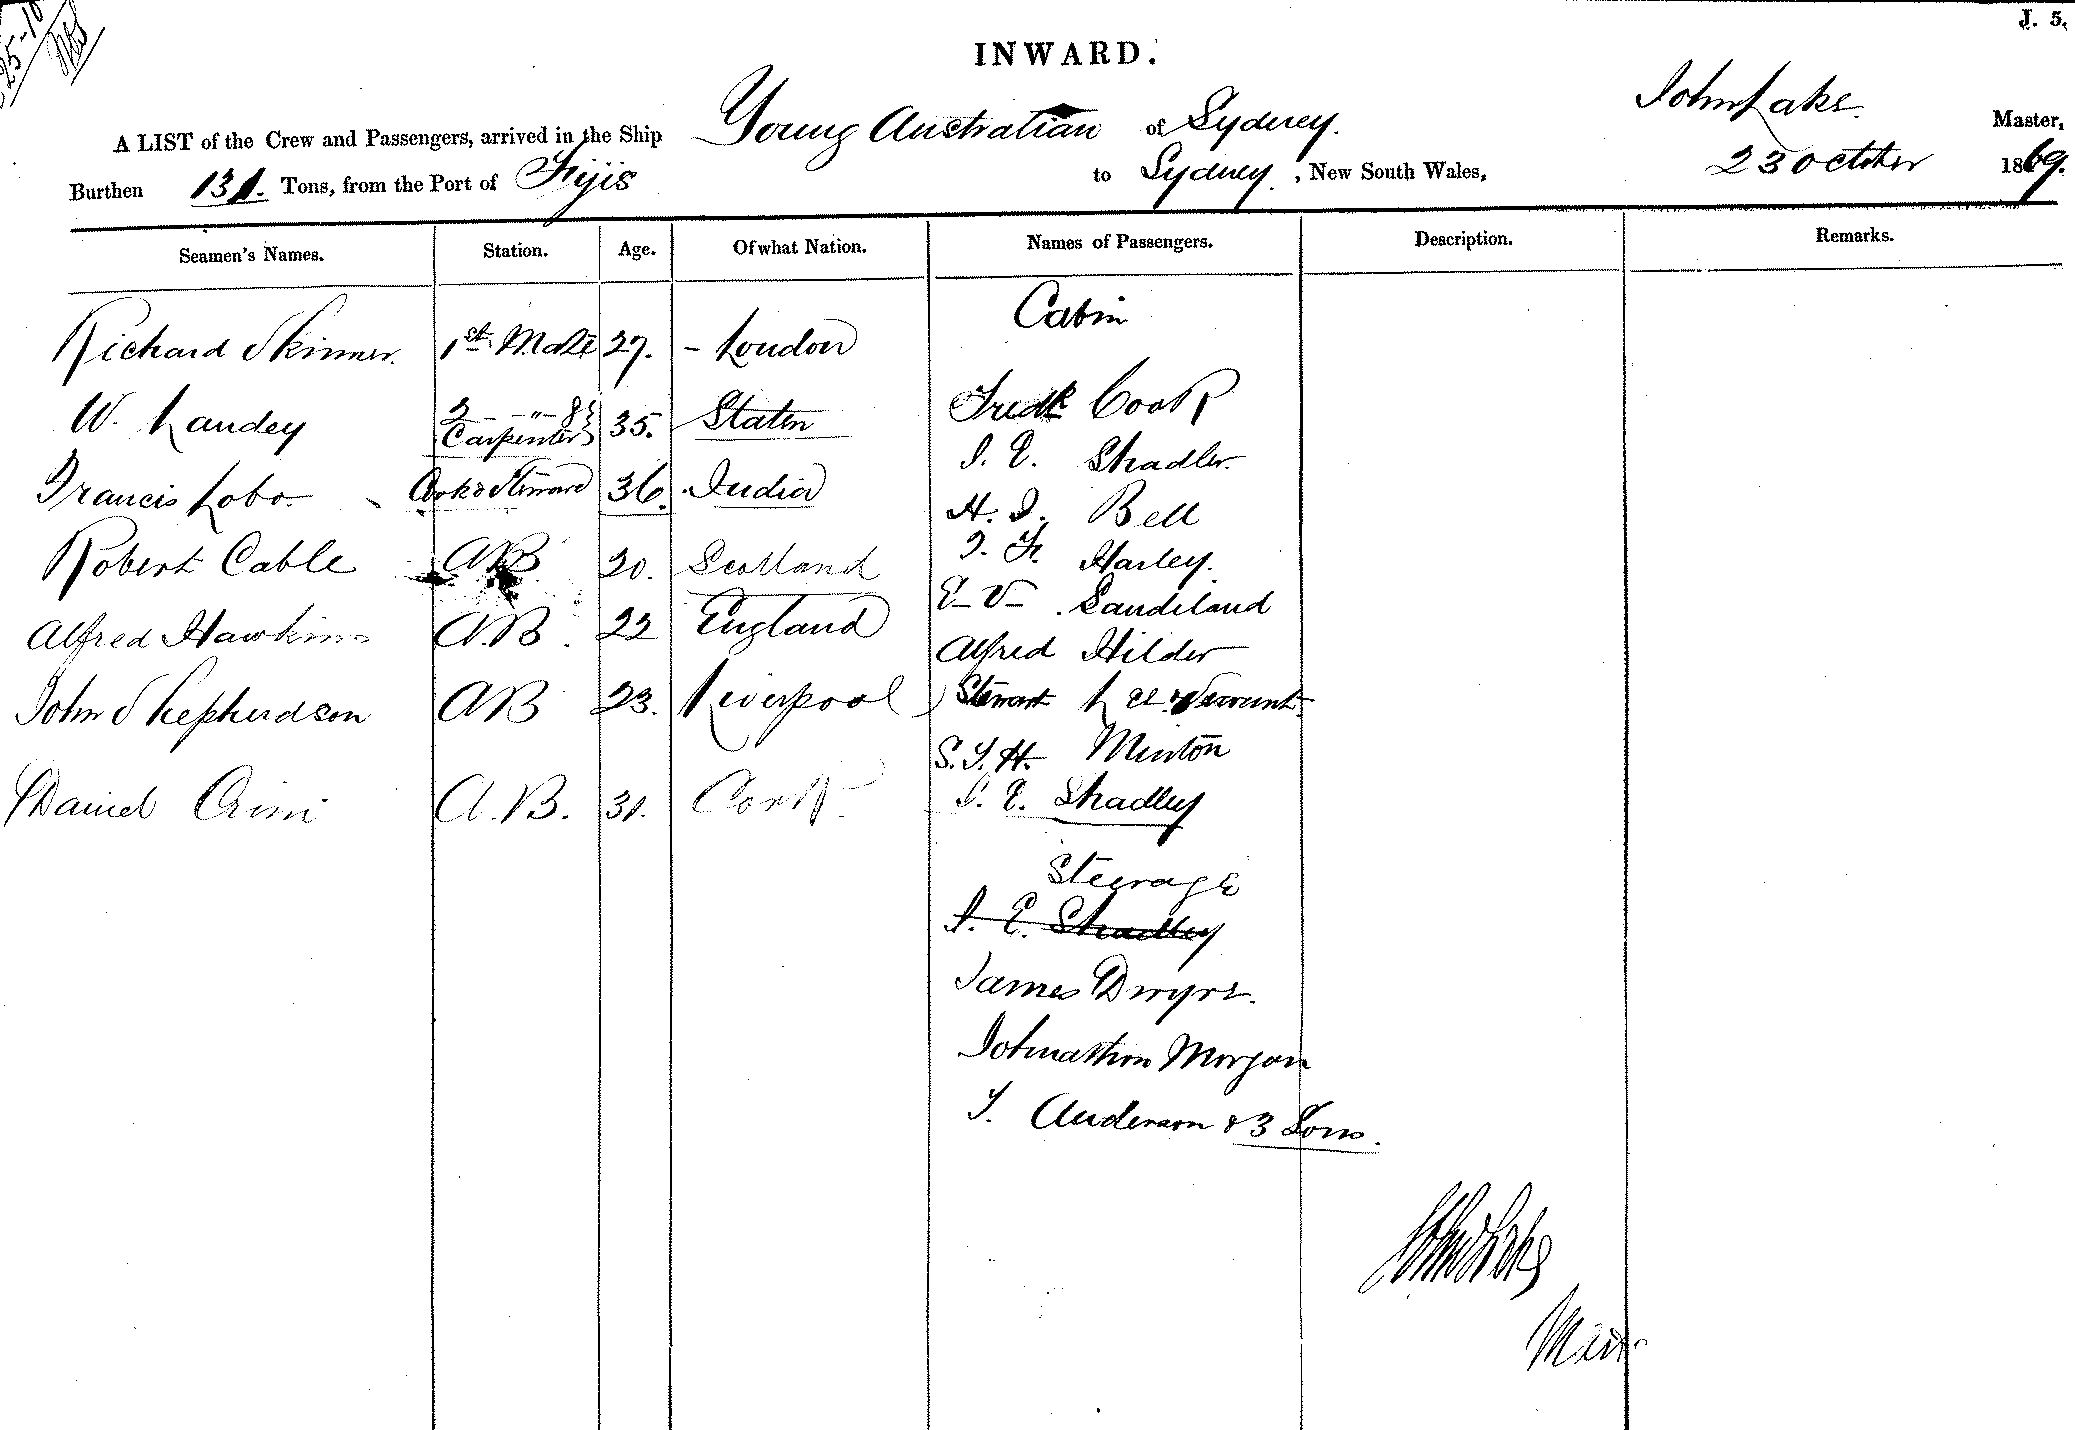 J. 5.
25-10
INWARD.
A LIST of the Crew and Passengers, arrived in the Ship Young Australian of Sydney. John Lake Master,
Burthen 131. Tons, from the Port of Fijis to Sydney, New South Wales, 23 October 1869.
Seamen's Names. Station. Age. Of what Nation. Names of Passengers. Description. Remarks.
Cabin
Richard Skinner. 1st Mate 27. - London
Fredk Cook
W. Landey 2 - " - & Carpenter 35. Staten
J. E. Shadler
Francis Lobo Cook & Steward 36. India
H. J. Bell
Robert Cable AB 20. Scotland
J. F. Harley.
E - V - Sandeland
Alfred Hawkins A.B. 22 England
Alfred Hilder
John Shepherdson AB 23. Liverpool
Stewart & Servant
S. J. H. Minton
Daniel A.B. 31. Cork
J. E. Shadley
Steerage
J. E. Shadley
James Dwyre.
Johnathon Morgan
J. Anderson & 3 Sons.
John Lake